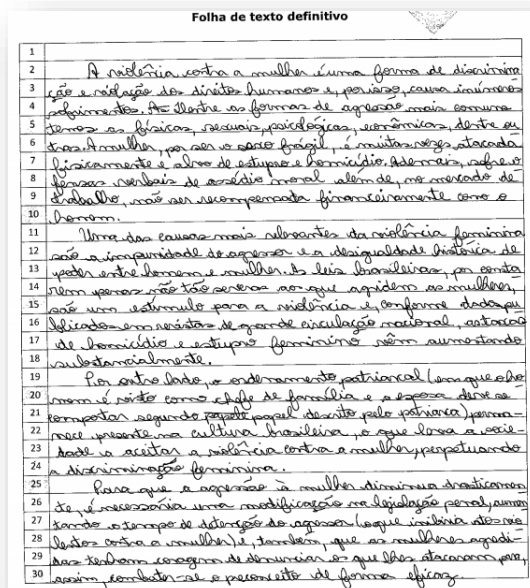 Folha de texto definitivo
1
2 A violência contra a mulher é uma forma de discrimina
3 ção e violação dos direitos humanos e, por isso, causa inúmeros
4 sofrimentos. As Dentre as formas de agressão mais comuns
5 temos as físicas, sexuais, psicológicas, econômicas, dentre ou
6 tras. A mulher, por ser o sexo frágil, é muitas vezes atacada
7 fisicamente e alvo de estupro e homicídio. Ademais, sofre o
8 fensas verbais de assédio moral além de, no mercado de
9 trabalho, não ser recompensada financeiramente como o
10 homem.
11 Uma das causas mais relevantes da violência feminina
12 são a impunidade do agressor e a desigualdade histórica de
13 poder entre homem e mulher. As leis brasileiras, por conta
14 rem penas não tão severas ao que agridem as mulheres,
15 são um estímulo para a violência e, conforme dados pu
16 blicados em revistas de grande circulação nacional, as taxas
17 de homicídio e estupro feminino vêm aumentando
18 substancialmente.
19 Por outro lado, o ordenamento patriarcal (em que o ho
20 mem é visto como chefe de família e a esposa deve se
21 comportar segundo papel descrito pelo patriarca) perma-
22 nece presente na cultura brasileira, o que leva a socie-
23 dade a aceitar a violência contra a mulher, perpetuando
24 a discriminação feminina.
25 Para que a agressão à mulher diminua drasticamen
26 te, é necessária uma modificação na legislação penal, aumen
27 tando o tempo de detenção do agressor (o que inibiria atos vio
28 lentos contra a mulher) e, também, que as mulheres agredi-
29 das tenham coragem de denunciar os que lhes atacaram para,
30 assim, combater-se o preconceito de forma eficaz.